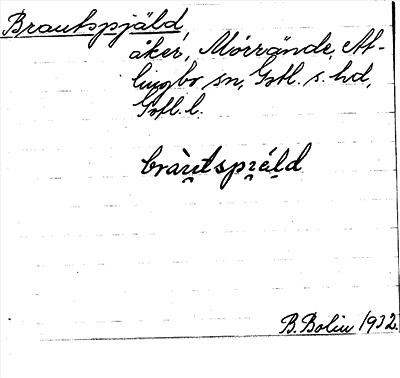 Brautspjäld,
åker, Mörrände, At-
lingbo sn, Gotl. s. hd,
Gotl. l.
bràu̯tspi̯áld
B. Bolin 1932.